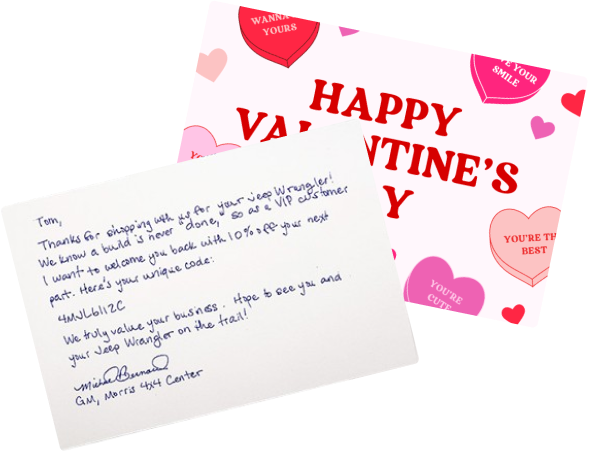 WANNA
YOURS
YOUR
SMILE
HAPPY
VALENTINE'S
Y
YOU'RE TH
BEST
YOU'RE
CUTE
Tom,
Thanks for shopping with us for your Jeep Wrangler!
We know a build is never "done," so as a VIP customer
I want to welcome you back with 10% off your next
part. Here's your unique code:
4MJL6112C
We truly value your business. Hope to see you and
your Jeep Wrangler on the trail!
GM, Morris 4x4 Center